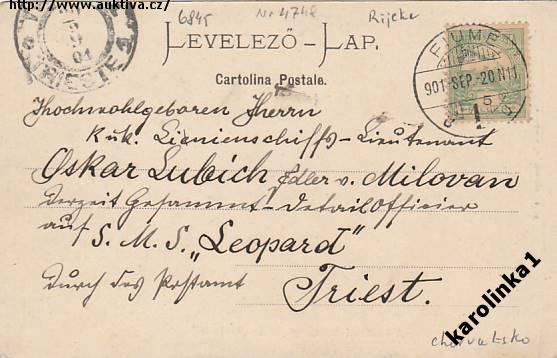 http://www.auktiva.cz/
6845
Nr 4748
Rijeka
TRIESTE
01
LEVELEZŐ-LAP.
Cartolina Postale.
FIUME
901 SEP.-20 N11
5
Hochwohlgeboren Herrn
K.u.k. Linienschiffs-Lieutenant
Oskar Lubich Edler v. Milovan
derzeit Gesammt-Detailofficier
auf S. M. S. „Leopard"
durch das Postamt Triest.
karolinka1
chorvatsko